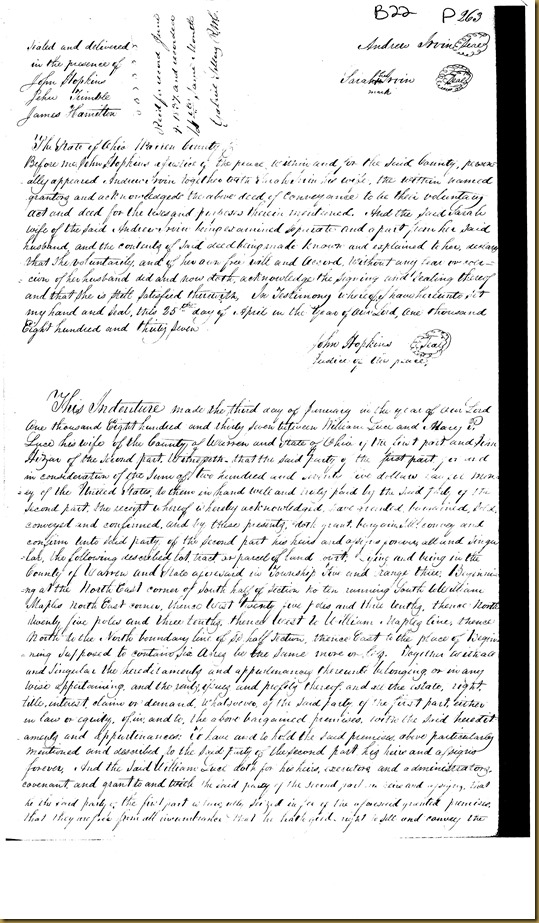 B22 P 263
Sealed and delivered
in the presence of
John Hopkins
John Trimble
James Hamilton
Andrew Irvin Seal
Sarah Irvin Seal
mark
The State of Ohio Warren County
Before me John Hopkins a Justice of the peace within and for the said County, person-
ally appeared Andrew Irvin together with Sarah Irvin his wife, the within named
grantors and acknowledged the above deed of conveyance to be their voluntary
act and deed for the uses and purposes therein mentioned. And the Said Sarah
wife of the said Andrew Irvin being examined separate and apart from her said
husband, and the contents of Said deed being made known and explained to her, declared
that She voluntarily, and of her own free will and accord, without any fear or coer-
cion of her husband did and now doth, acknowledge the signing and Sealing thereof
and that She is Still Satisfied therewith, In Testimony whereof I have hereunto Set
my hand and Seal, this 25th day of April in the Year of our Lord, one thousand
Eight hundred and thirty Seven
John Hopkins Seal
Justice of the peace
This Indenture made the third day of January in the year of our Lord
One thousand Eight hundred and thirty Seven between William Luce and Mary
Luce his wife of the County of Warren and State of Ohio of the first part and
of the Second part, Witnesseth, that the Said Party of the first part, for and
in consideration of the Sum of two hundred and five dollars mon-
ey of the United States, to them in hand well and truly paid by the Said party of the
Second part the receipt whereof is hereby acknowledged, have granted, bargained, Sold,
conveyed and confirmed, and by these presents, doth grant, bargain Sell convey and
confirm unto Said party, of the Second part his heirs and assigns forever all and Singu-
lar, the following described lot tract or parcel of land viz. Lying and being in the
County of Warren and State aforesaid in Township four and range three, Beginnin-
ng at the North East corner of South half of Section no ten running South to William
Maples North East corner, thence West Twenty five poles and three tenths, thence North
twenty five poles and three tenths, thence West to William Maples line, thence
North to the North boundary line of Sd half Section, thence East to the place of Begin-
ning Supposed to contain Six Acres be the same more or less. Together with all
and Singular the hereditaments and appurtenances thereunto belonging or in any
wise appertaining, and the rents, issues and profits thereof and all the estate, right,
title, interest, claim or demand, whatsoever, of the Said party of the first part, either
in law or equity, of in and to, the above bargained premises, with the Said heredit-
aments and appurtenances. To have and to hold the Said premises above particularly
mentioned and described, to the Said Party of the Second part his heirs and assigns
forever, And the Said William Luce doth for his heirs, executors and administrators,
covenant, and grant to and with the said party of the Second part his heirs and assigns, that
he the Said party of the first part is well Seized in fee of the aforesaid granted premises,
that they are free from all incumbrance that he hath good right to Sell and convey the